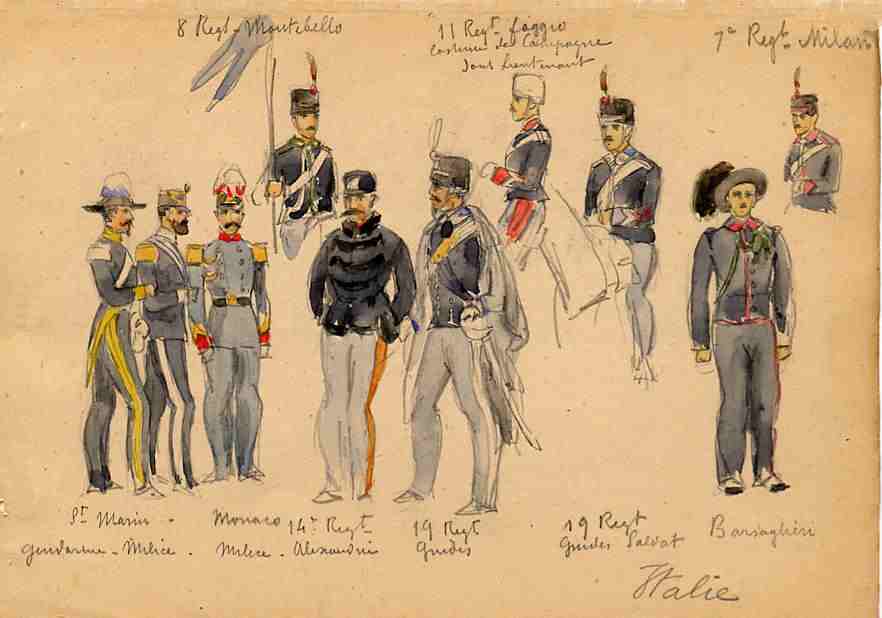 8 Regt. Montebello
11 Regt. Foggio
Costume de Campagne
Sous Lieutenant
7e Regt. Milan
St Marin -
Gendarme - Milice -
Monaco
Milice -
14e Regt
Alexandrie
19 Regt
Guides
19 Regt
Guides Soldat
Barsaglieri
Italie